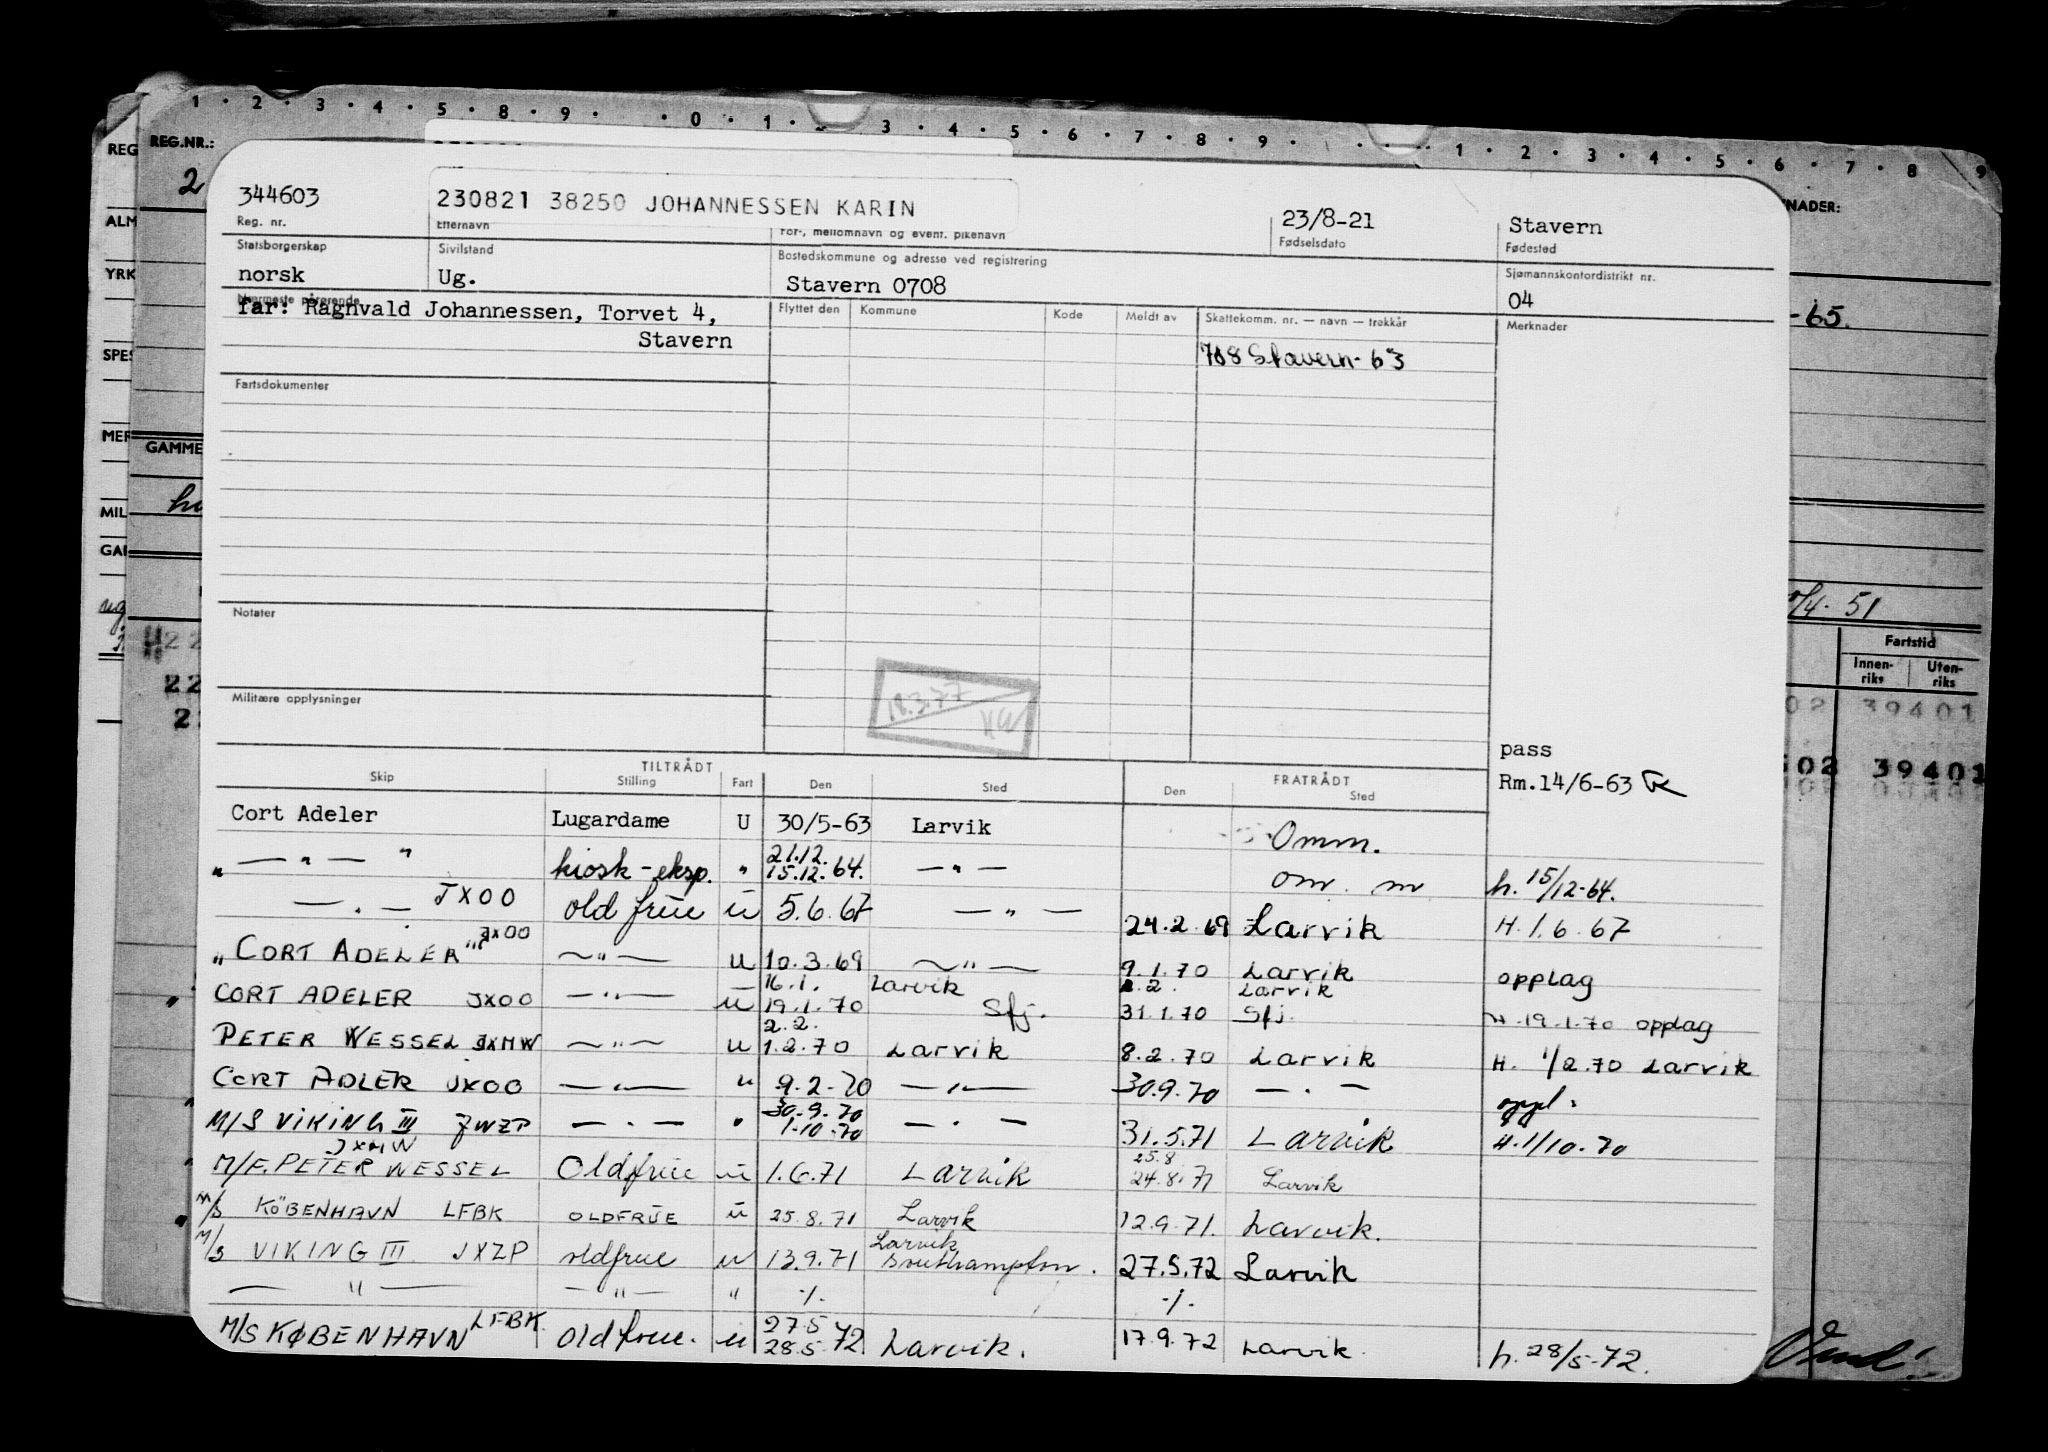 1 · 2 · 3 · 4 · 5 · 8 · 9 · · 0 · 1 · 3 · 4 · 5 · 6 · 7 · 8 · 9 · · · · 1 · 2 · 3 · 4 · 5 · 6 · 7 · 8 9
REG.NR.:
344603 230821 38250 JOHANNESSEN KARIN 23/8-21 Stavern
Reg. nr. Etternavn For-, mellomnavn og event. pikenavn Fødselsdato Fødested
Statsborgerskap Sivilstand Bostedskommune og adresse ved registrering Sjømannskontordistrikt nr.
norsk Ug. Stavern 0708 04
Nærmeste pårørende Flyttet den Kommune Kode Meldt av Skattekomm. nr. — navn — trekkår Merknader
far: Ragnvald Johannessen, Torvet 4,
Stavern 708 Stavern-63
Fartsdokumenter
Notater
Militære opplysninger
18.3.77
pass
Rm.14/6-63
TILTRÅDT FRATRÅDT
Skip Stilling Fart Den Sted Den Sted
Cort Adeler Lugardame U 30/5-63 Larvik Omm.
" — " — " kiosk-eksp. " 21.12. 15.12.64. — " — om. m h. 15/12-64.
— " — JXOO oldfrue u 5.6.67 — " — 24.2.69 Larvik H.1.6.67
"CORT ADELER" JXOO — " — u 10.3.69 — " — 9.1.70 Larvik opplag
CORT ADELER JXOO — " — u 16.1. 19.1.70 Larvik Sfj. 2.2. 31.1.70 Larvik Sfj. H.19.1.70 opplag
PETER WESSEL JXMW — " — u 2.2. 1.2.70 Larvik 8.2.70 Larvik H. 1/2.70 Larvik
CORT ADLER JXOO — " — u 9.2-70 — " — 30.9.70 — " — oppl.
M/S VIKING III JWZP — " — " 30.9.70 1.10.70 — " — 31.5.71 Larvik H.1/10.70
M/F. PETER WESSEL JXMW Oldfrue u 1.6.71 Larvik 25.8 24.8.71 Larvik
M/S KÖBENHAVN LFBK OLDFRUE u 25.8.71 Larvik 12.9.71. Larvik.
M/S VIKING III JXZP oldfrue u 13.9.71 Larvik Southampton. 27.5.72 Larvik
— " — — " — " -/- -/-
M/S KØBENHAVN LFBK. oldfrue. u 27.5 28.5.72 Larvik. 17.9.72 Larvik. h. 28/5-72.
REG
ALM
YRK
SPES
MER
GAMME
MIL
GAR
2
NADER:
-65.
/4-51
Fartstid
Innen-
riks
Uten-
riks
02 39401
502 39401
Vend!